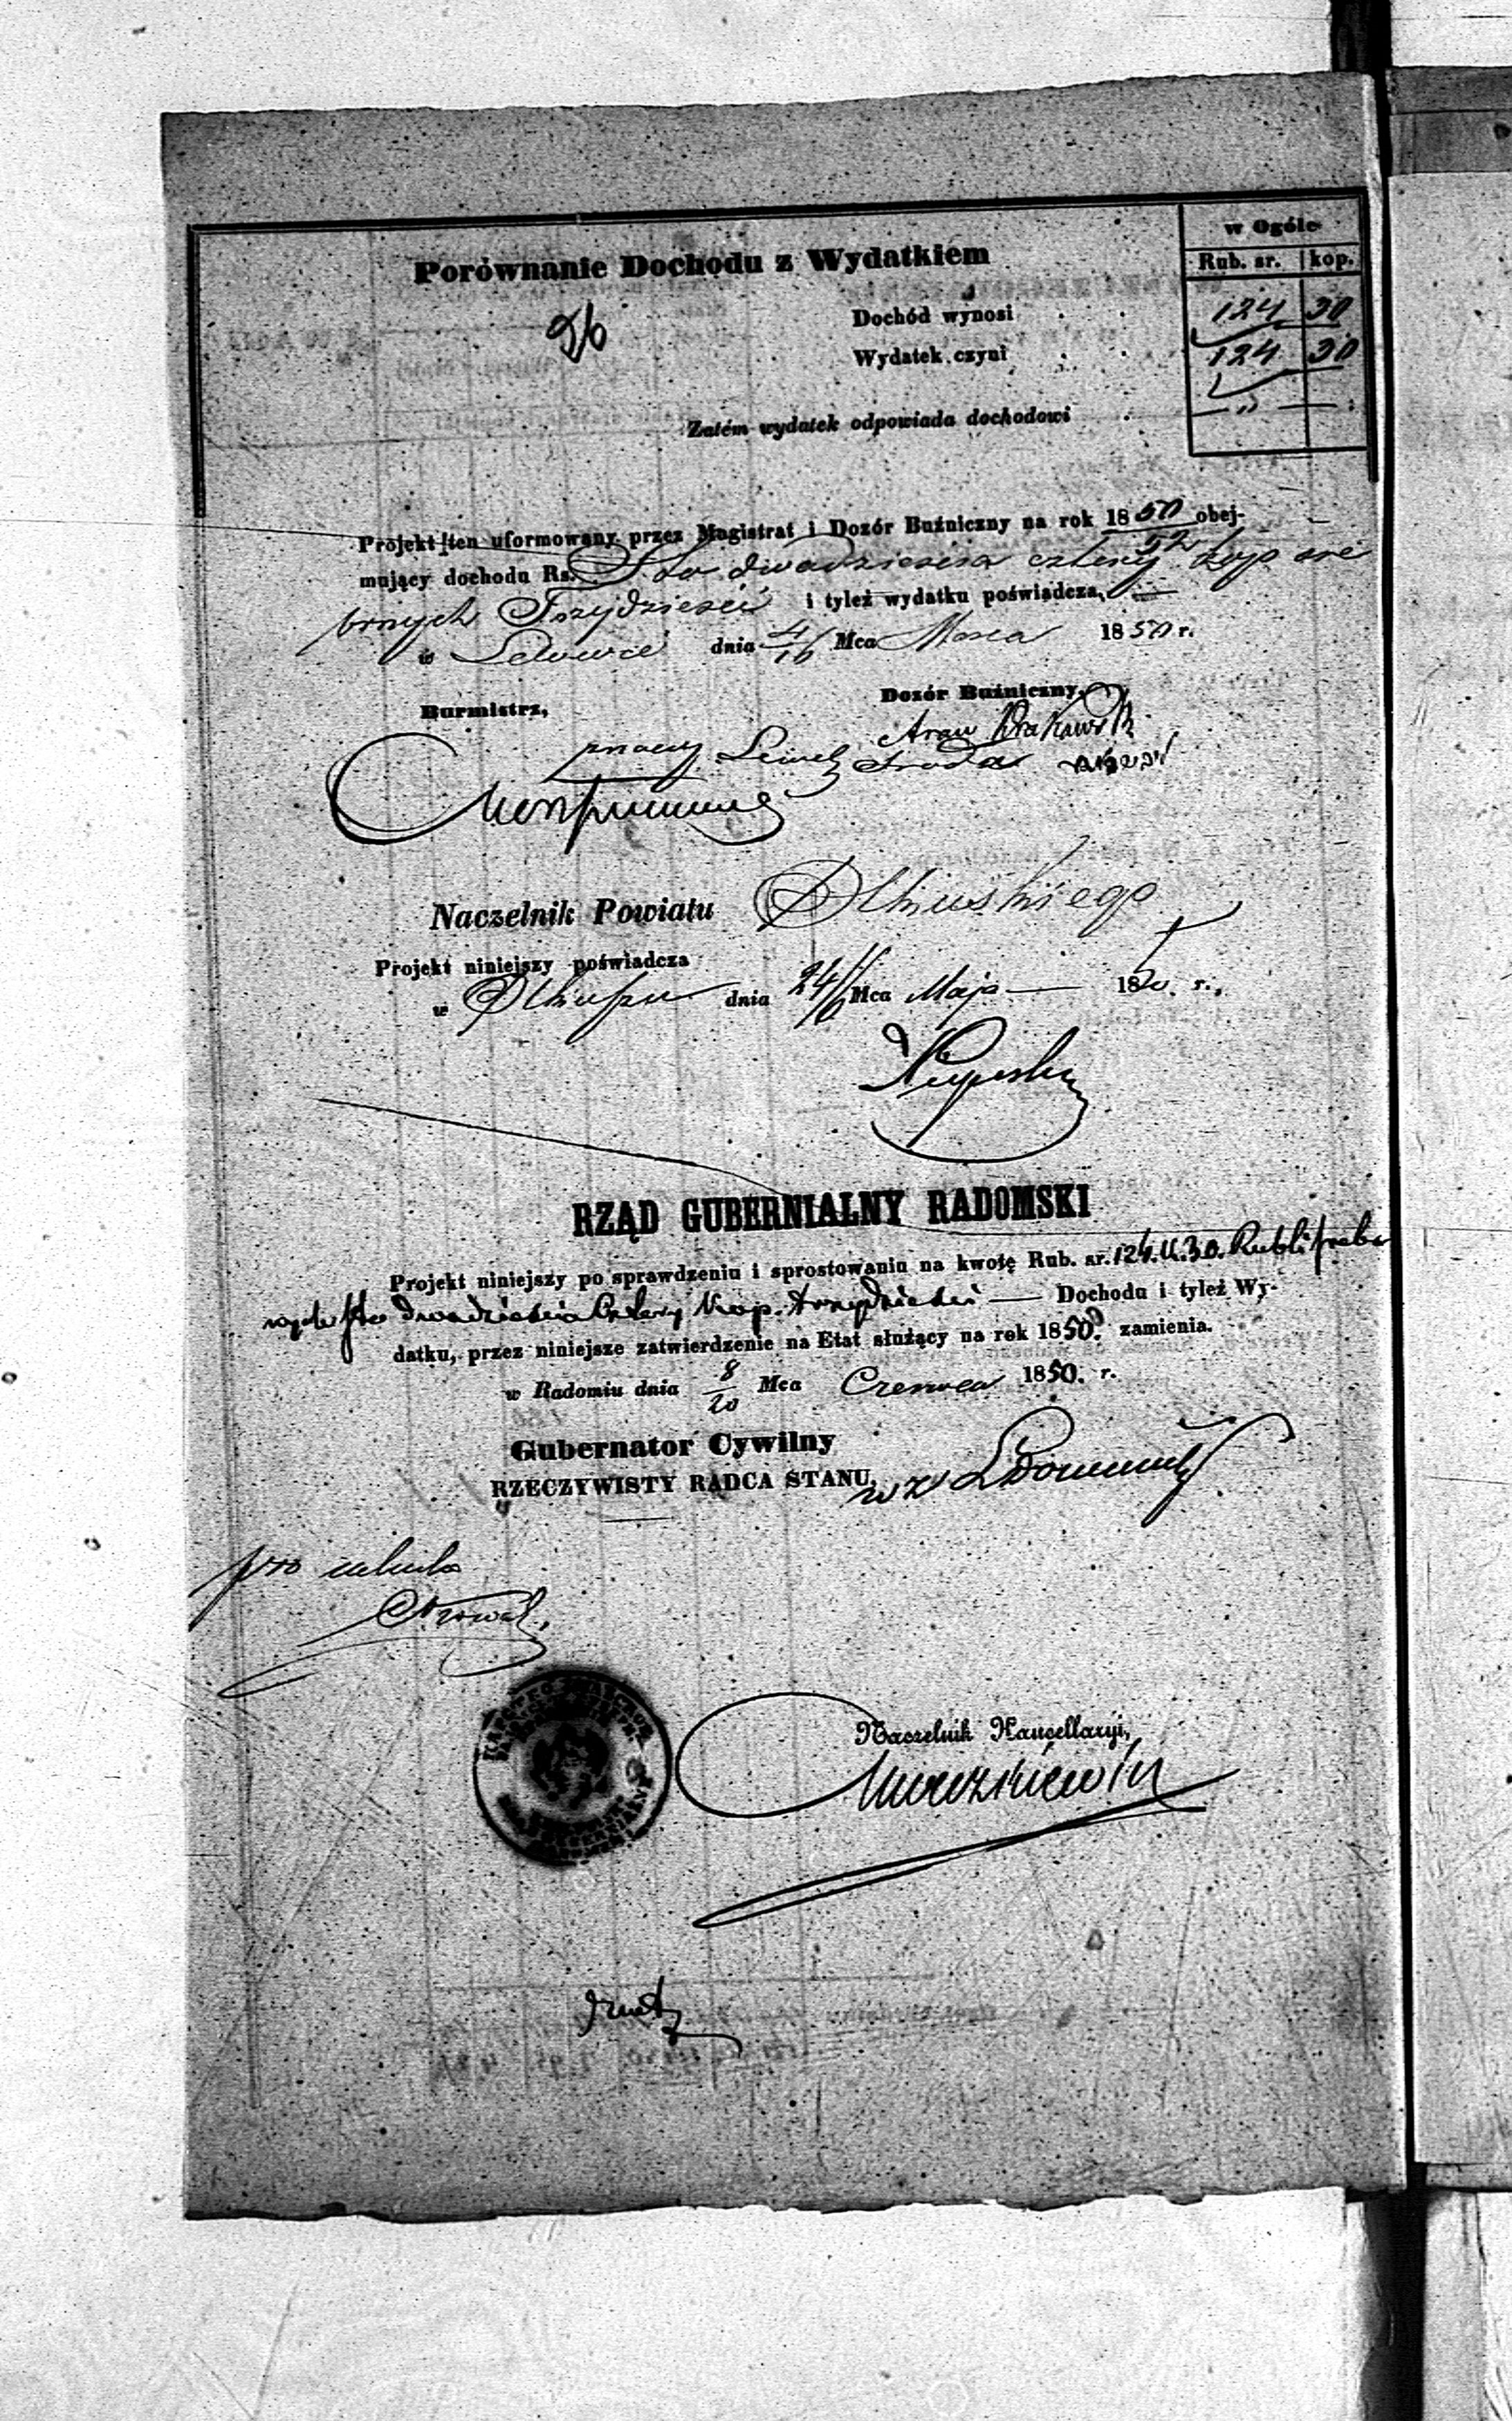 w Ogóle
Porównanie Dochodu z Wydatkiem
Rub. sr. kop.
Dochód wynosi . . 124 30
Wydatek czyni . . 124 30
Zatém wydatek odpowiada dochodowi . — „ —
Projekt ten uformowany przez Magistrat i Dozór Buźniczny na rok 1850/52 obej-
mujący dochodu Rs. Sto dwadzieścia cztery kop sre
brnych Trzydzieści i tyleż wydatku poświadcza,
w Lelowie dnia 4/16 Mca Marca 1850 r.
Burmistrz,
Dozór Buźniczny,
Naczelnik Powiatu Olkuskiego
Projekt niniejszy poświadcza
w Olkuszu dnia Mca Maja 1850 r.,
RZĄD GUBERNIALNY RADOMSKI
Projekt niniejszy po sprawdzeniu i sprostowaniu na kwotę Rub. sr. 124. k. 30. Rubli srebr
nych sto dwadzieścia cztery kop. trzydzieści — Dochodu i tyleż Wy-
datku, przez niniejsze zatwierdzenie na Etat służący na rok 1850. zamienia.
w Radomiu dnia 8/20 Mca Czerwca 1850. r.
Gubernator Cywilny
RZECZYWISTY RADCA STANU,
Naczelnik Kancellaryi,